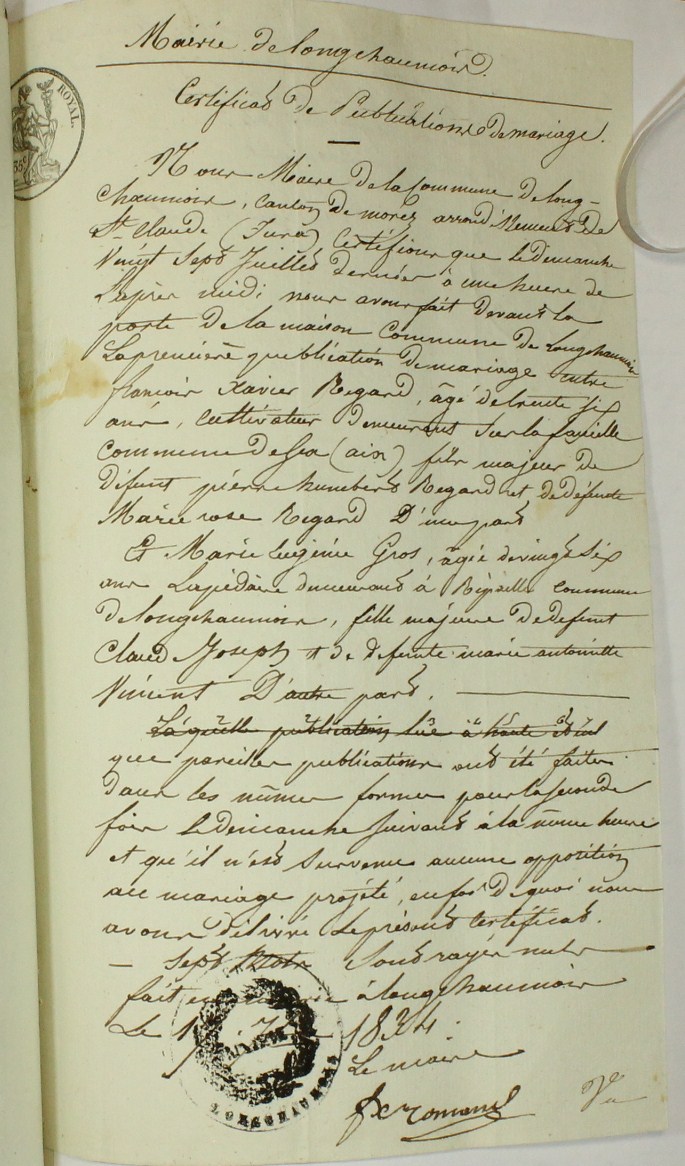 Mairie de Longchaumois.
ROYAL.
35c
Certificat de Publications de mariage.
Nous Maire de la Commune de Long-
chaumois, canton de morez arrondissement de
St Claude (Jura) Certifions que le dimanche
Vingt Sept Juillet dernier à une heure de
L'après midi nous avons fait devant la
porte de la maison Commune de Longchaumois
La première publication de mariage entre
francois Xavier Regard, âgé de trente six
ans, cultivateur demeurant sur la
commune de (ain) fils majeur de
défunt pierre humbert Regard et de défunte
Marie rose Regard D'une part
Et Marie Eugénie Gros, âgée de vingt six
ans Lapidaire demeurant à Repaille commune
de longchaumois, fille majeure de defunt
Claud Joseph et de defunte marie antoinette
Vincent D'autre part.
La quelle publication lue à haute et
que pareilles publications ont été faites
dans les mêmes formes pour la seconde
fois le dimanche suivant à la même heure
et qu'il n'est survenu aucune opposition
au mariage projété, en foi de quoi nous
avons délivré le présent Certificat.
— Sept Mots sont rayés nuls
fait en à longchaumois
Le 1834.
MAIRIE DE
LONGCHAUMOIS
Le maire
fx romand
Vu